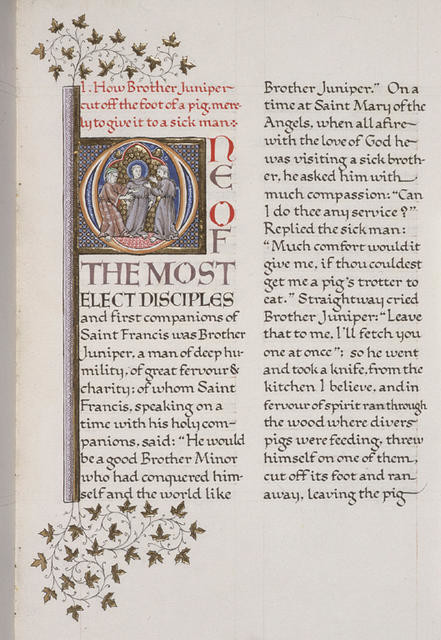 1. How Brother Juniper
cut off the foot of a pig, mere-
ly to give it to a sick man:
O
NE
OF
THE MOST
ELECT DISCIPLES
and first companions of
Saint Francis was Brother
Juniper, a man of deep hu-
mility, of great fervour &
charity; of whom Saint
Francis, speaking on a
time with his holy com-
panions, said: "He would
be a good Brother Minor
who had conquered him-
self and the world like
Brother Juniper." On a
time at Saint Mary of the
Angels, when all afire
with the love of God he
was visiting a sick broth-
er, he asked him with
much compassion: "Can
I do thee any service?"
Replied the sick man:
"Much comfort would it
give me, if thou couldest
get me a pig's trotter to
eat." Straightway cried
Brother Juniper: "Leave
that to me, I'll fetch you
one at once"; so he went
and took a knife, from the
kitchen I believe, and in
fervour of spirit ran through
the wood where divers
pigs were feeding, threw
himself on one of them,
cut off its foot and ran
away, leaving the pig